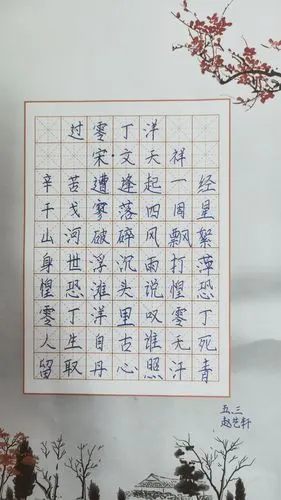 过零丁洋
宋·文天祥
辛苦遭逢起一经
干戈寥落四周星
山河破碎风飘絮
身世浮沉雨打萍
惶恐滩头说惶恐
零丁洋里叹零丁
人生自古谁无死
留取丹心照汗青
五、三
赵艺轩